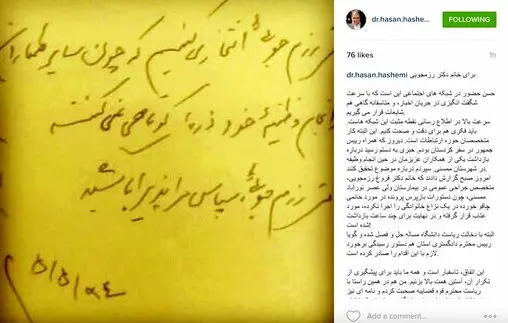 dr.hasan.hashe...
FOLLOWING
76 likes
1h
dr.hasan.hashemi برای خانم دکتر رزمجویی
حسن حضور در شبکه های اجتماعی این است که با سرعت
شگفت انگیزی در جریان اخبار، و متاسفانه گاهی هم
شایعات قرار می گیریم.
سرعت بالا در اطلاع رسانی نقطه مثبت این شبکه هاست.
باید فکری هم برای دقت و صحت کنیم. این البته کار
متخصصان حوزه ارتباطات است. دیروز که همراه رییس
جمهور در سفر کردستان بودم، خبری به دستم رسید درباره
بازداشت یکی از همکاران عزیزمان در حین انجام وظیفه
در شهرستان ممسنی. سپردم درباره موضوع تحقیق کنند.
امروز صبح گزارش دادند که خانم دکتر فروغ رزمجویی،
متخصص جراحی عمومی در بیمارستان ولی عصر نورآباد
ممسنی، چون دستورات بازپرس پرونده در مورد خانمی
چاقو خورده در یک نزاع خانوادگی را اجرا نکرده، مورد
عتاب قرار گرفته و در نهایت برای چند ساعت بازداشت
شده است!
البته با دخالت ریاست دانشگاه مساله حل و فصل شده و گویا
رییس محترم دادگستری استان هم دستور رسیدگی برخورد
لازم با این اقدام را صادر کرده است.
این اتفاق، تاسفبار است و همه ما باید برای پیشگیری از
تکرار آن، آستین همت بالا بزنیم. من هم در همین راستا با
ریاست محترم قوه قضاییه صحبت کردم و نامه ای نیز
Add a comment...
افتخار می کنیم که چون سایر طبیباران
انجام وظیفه خود ذره ای کوتاهی نمی کنند
سپاس مرا پذیرا باشید
۵/۵/۹۴